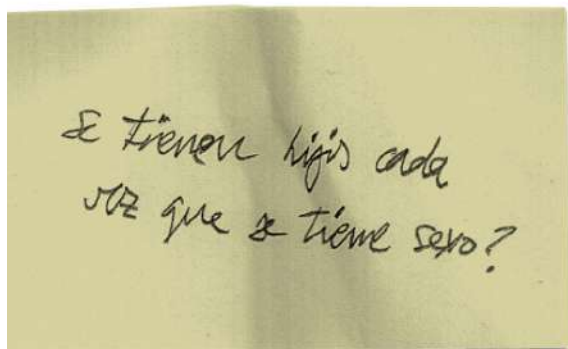 se tienen hijis cada
vez que se tiene sexo?